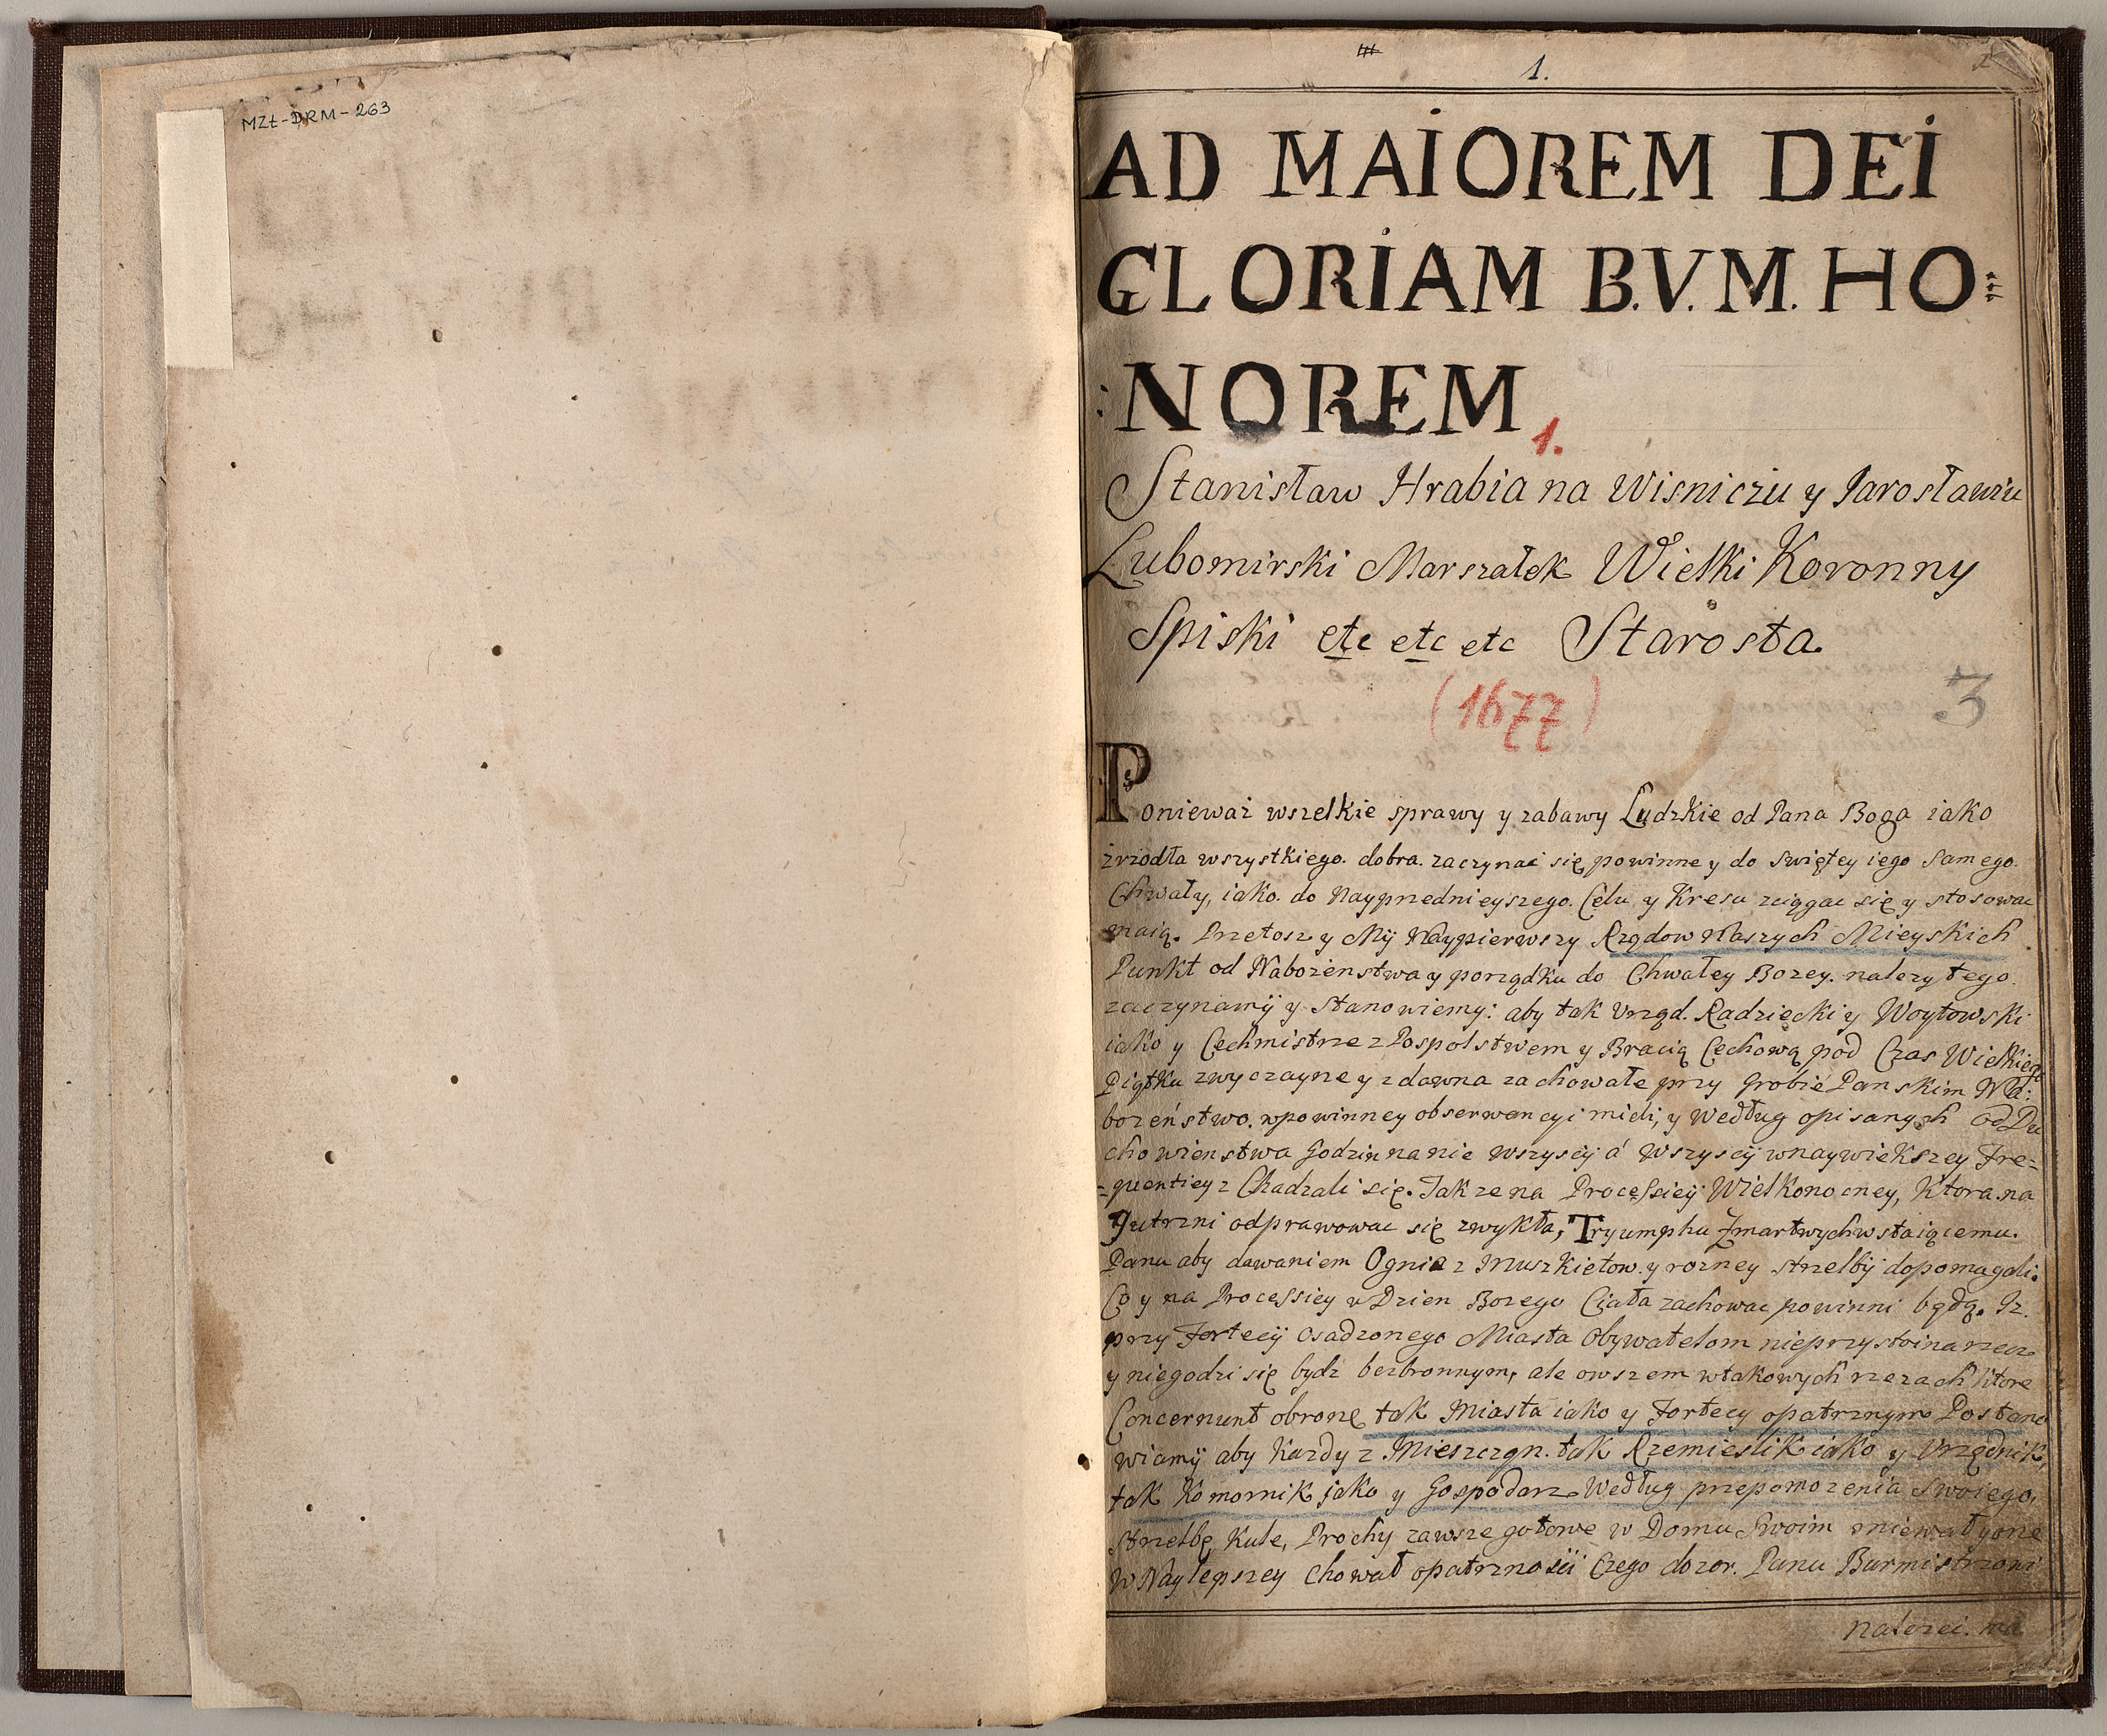 MZŁ-DRM-263
1.
AD MAIOREM DEI
GLORIAM B.V.M. HO:
:NOREM
1.
Stanisław Hrabia na Wisniczu y Jarosławiu
Lubomirski Marszałek Wielki Koronny
Spiski etc etc etc Starosta.
(1677)
3
Ponieważ wszelkie sprawy y zabawy Ludzkie od Pana Boga iako
źrzodła wszystkiego. dobra. zaczynać się powinne y do swiętey iego samego.
Chwały, iako. do Nayprzednieyszego. Celu y Kresu zciągać się y stosować
maią. Przetosz y My Naypierwszy Rządow Naszych Mieyskich
Punkt od Nabożenstwa y porządku do Chwałey Bozey. nalezytego.
zaczynamy y Stanowiemy: aby tak Urząd. Radziecki y Woytowski
iako y Cechmistrze z Pospolstwem y Bracią Cechową pod Czas Wielkiego
Piątku zwyczayne y zdawna zachowałe przy Grobie Panskim Na:
bozeństwo. w powinney obserwancyi mieli, y według opisanych od Du
chowienstwa Godzin na nie wszyscy á wszyscy w naywiekszey Fre=
=quentiey z Chadzali się. Takze na Processiey Wielkonocney, Ktora na
Jutrzni odprawowac się zwykła, Tryumphu Zmartwychwstaiąiemu.
Panu aby dawaniem Ognia z Muszkietow. y rozney strzelby dopomagali.
Co y na Processiey w Dzien Bozego Ciała zachowac powinni będą. Iz.
przy Fortecy osadzonego Miasta Obywatelom nieprzystoina rzecz
y niegodzi się bydz bezbronnym, ale owszem w takowych rzezach ktore
Concernunt obronę tak Miasta iako y Fortecy opatrznym Postano
wiamy aby Kazdy z Mieszczan. tak Rzemieslik iako y Urządnik,
tak Komornik jako y Gospodarz Według przepomozenia Swoiego,
strzelbę, Kule, Prochy zawsze gotowe w Domu Swoim miewał y one
w Naylepszey chował opatrznosći Czego dozor. Panu Burmistrzowi
nalezei.